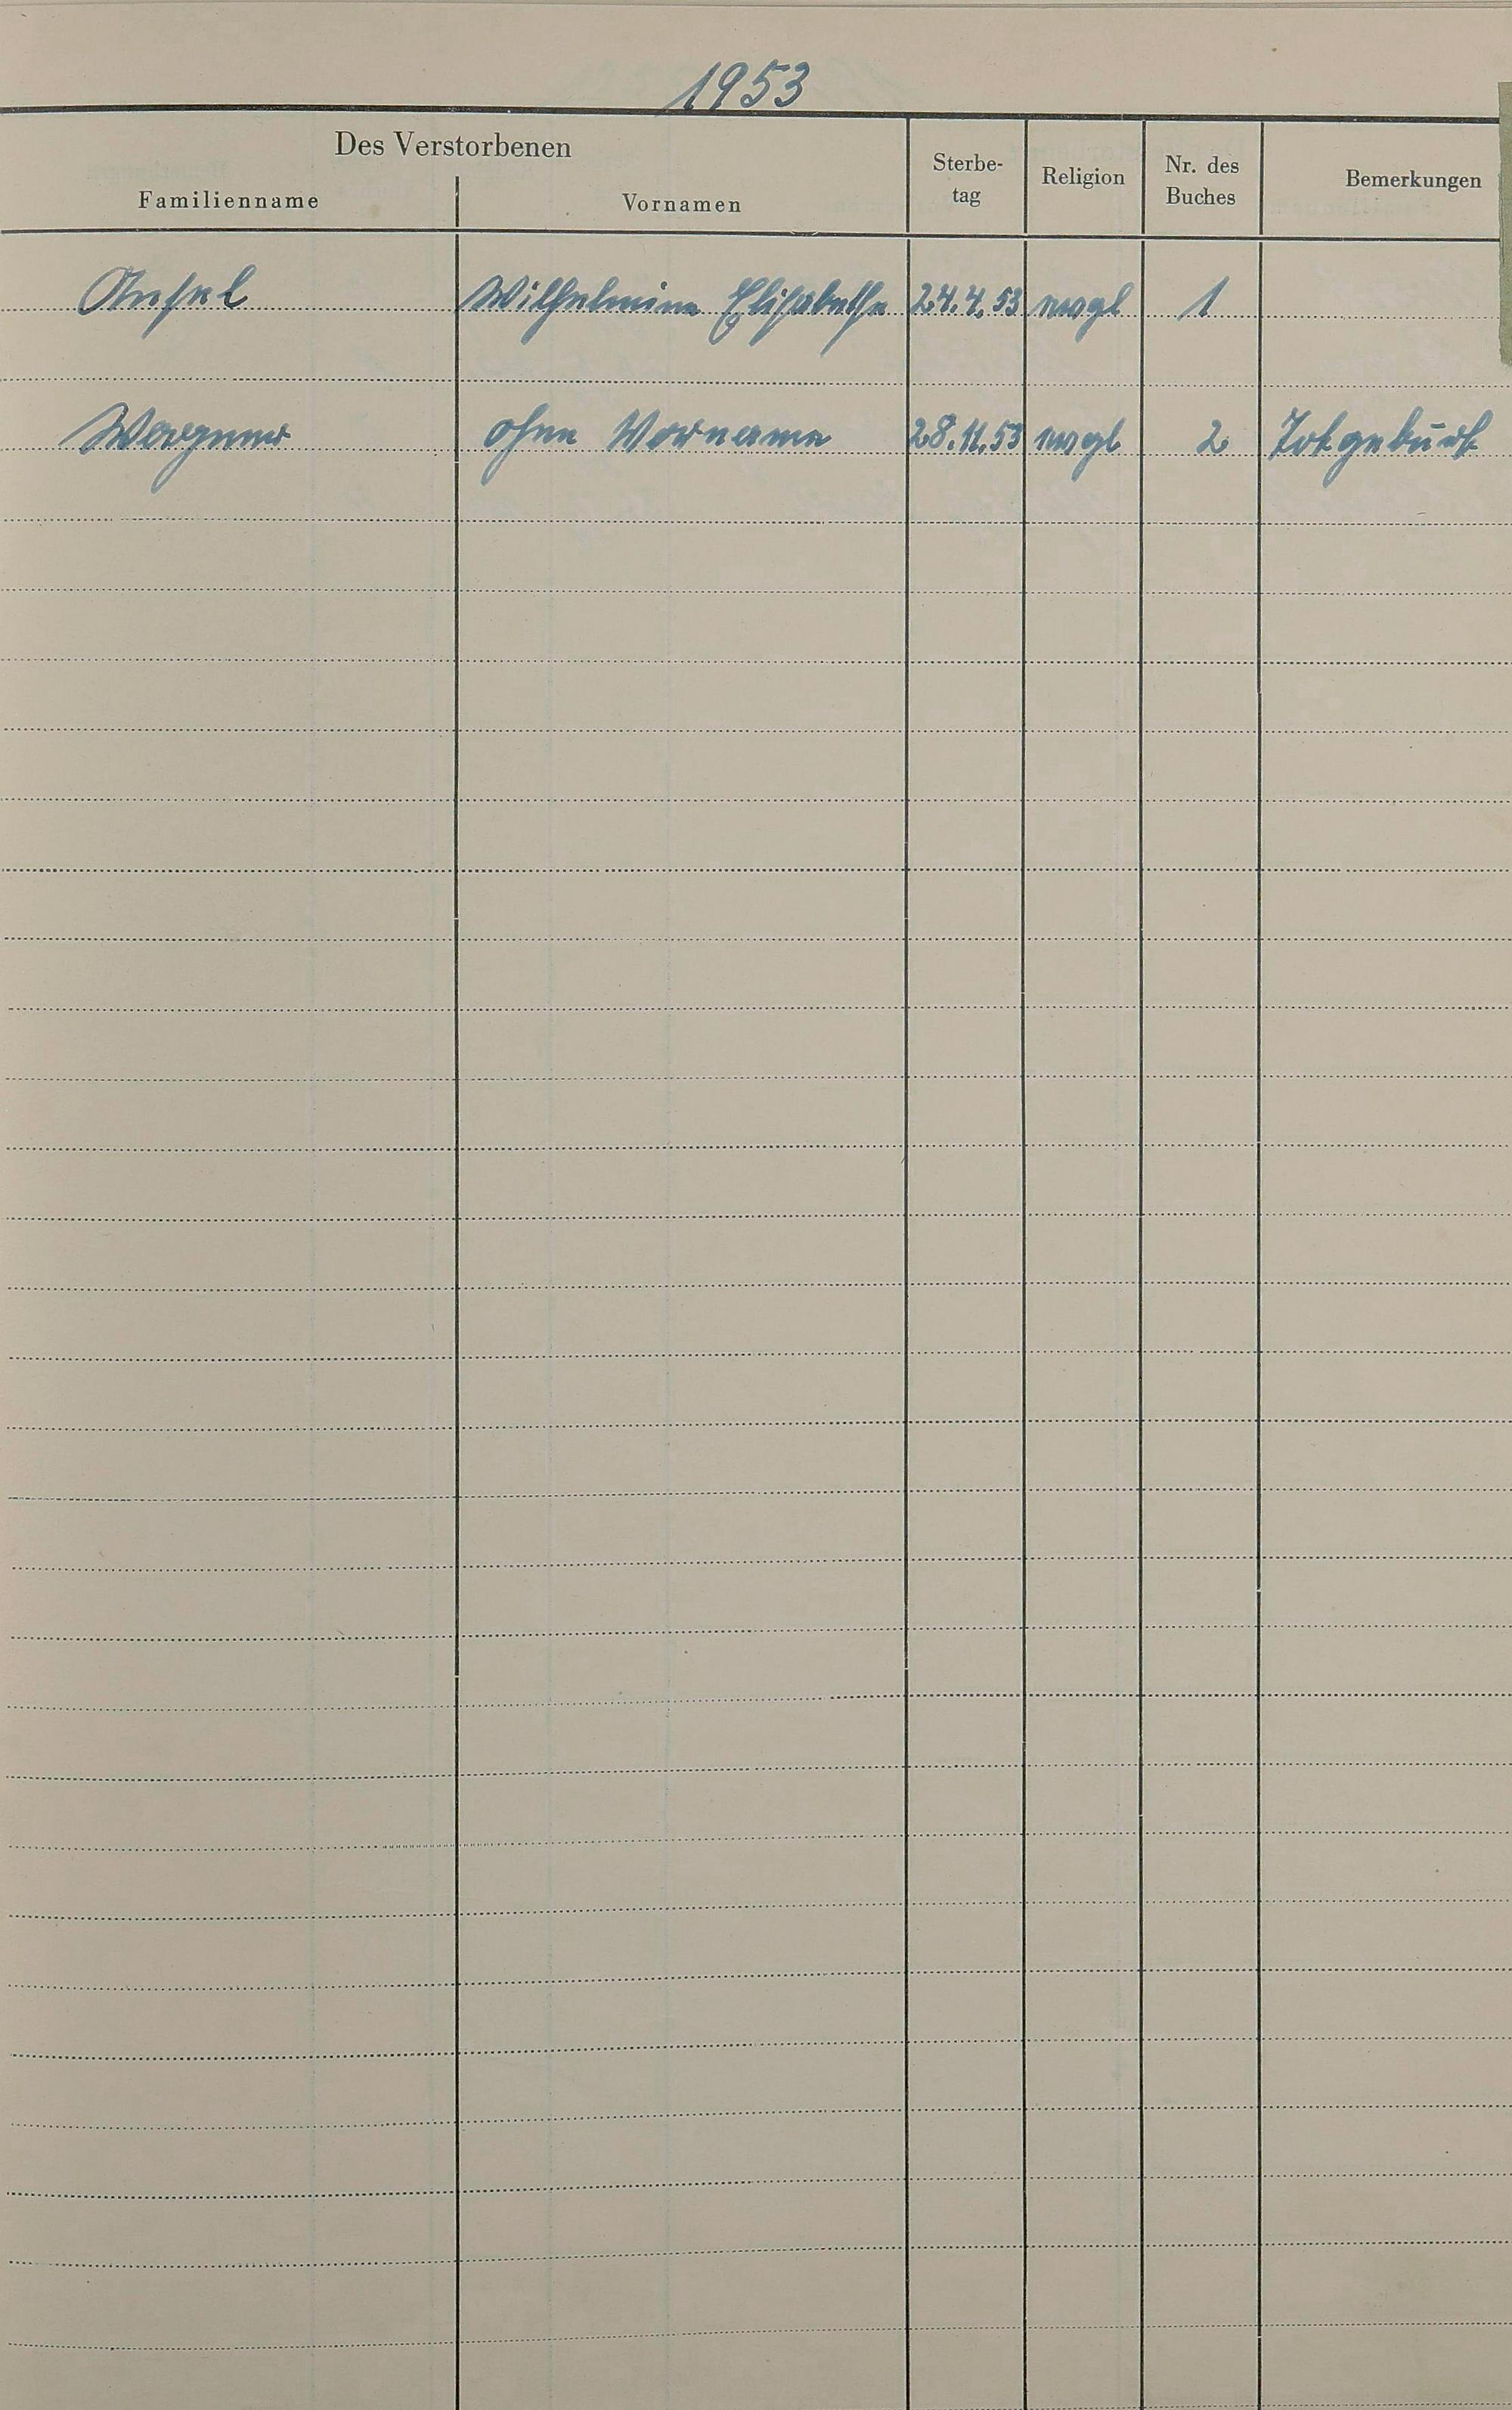 1953
Des Verstorbenen
Familienname Vornamen Sterbe- tag Religion Nr. des Buches Bemerkungen
Wilhelmine Elisabethe 24.4.53 evgl 1
Wagner ohne Vorname 28.11.53 evgl 2 Totgeburt